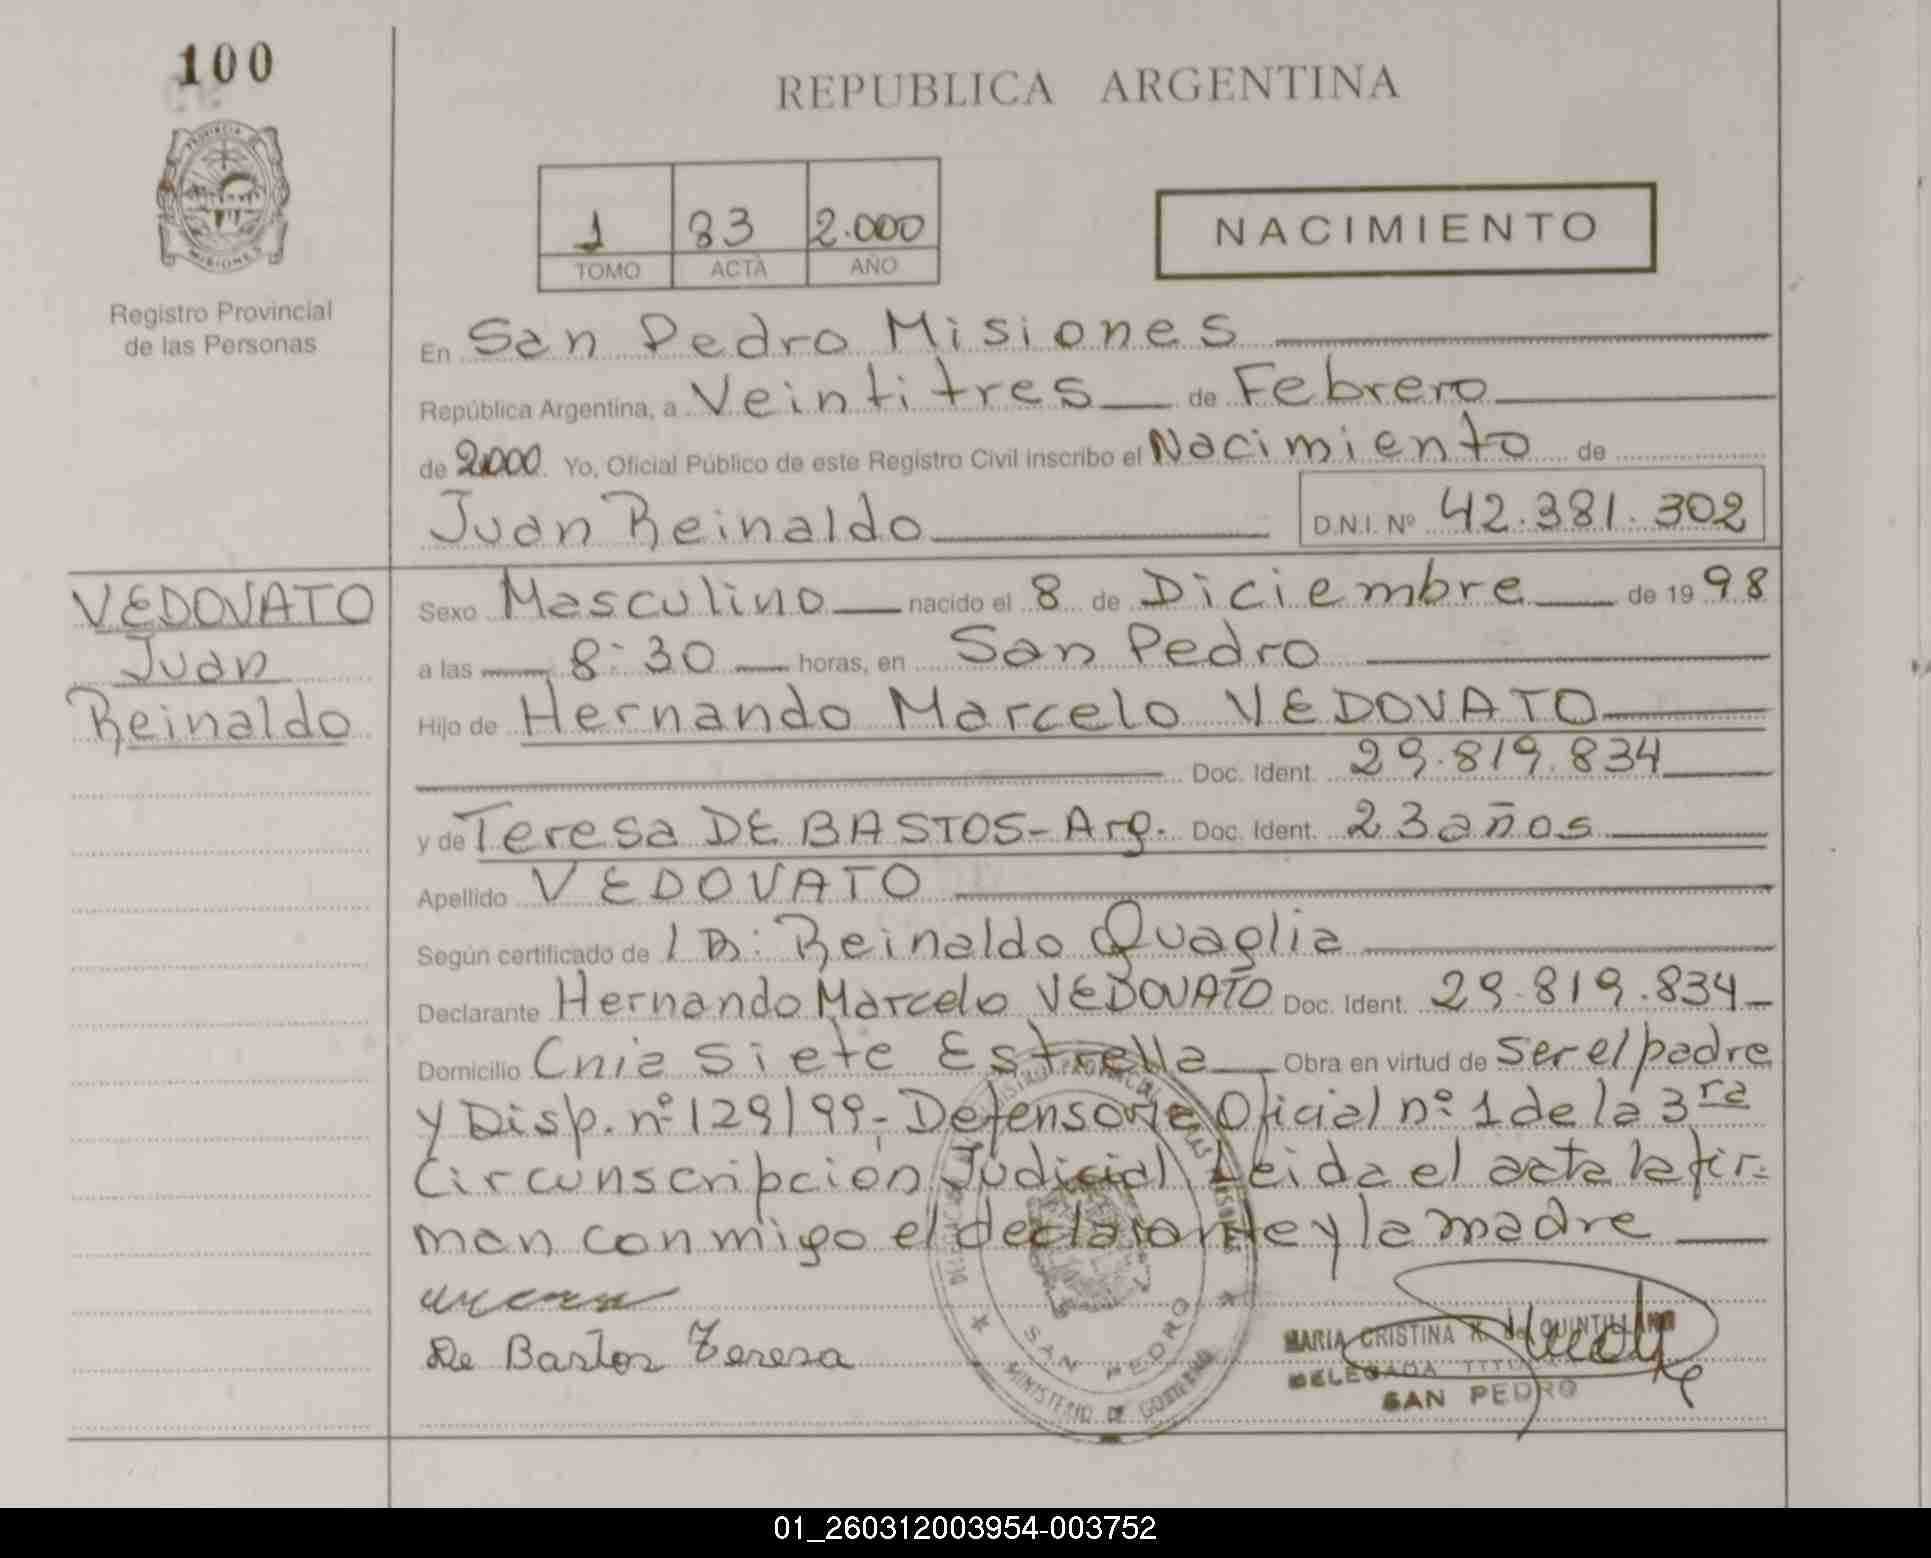 100
REPUBLICA ARGENTINA
PROVINCIA DE
MISIONES
Registro Provincial
de las Personas
1 83 2.000
TOMO ACTA AÑO
NACIMIENTO
En San Pedro Misiones
República Argentina, a Veintitres de Febrero
de 2.000. Yo, Oficial Público de este Registro Civil inscribo el Nacimiento de
Juan Reinaldo D.N.I. Nº 42.381.302
VEDOVATO
Juan
Reinaldo
Sexo Masculino nacido el 8 de Diciembre de 1998
a las 8:30 horas, en San Pedro
Hijo de Hernando Marcelo VEDOVATO
Doc. Ident. 29.819.834
y de Teresa DE BASTOS - Arg. Doc. Ident. 23 años
Apellido VEDOVATO
Según certificado de I D: Reinaldo Quaglia
Declarante Hernando Marcelo VEDOVATO Doc. Ident. 29.819.834
Domicilio Cnia Siete Estrella Obra en virtud de ser el padre
y Disp. nº 129/99, Defensoria Oficial nº 1 de la 3ra
Circunscripción Judicial Leida el acta la fir=
man conmigo el declarante y la madre
De Bastos Teresa
SAN PEDRO
MINISTERIO DE GOBIERNO
MARIA CRISTINA K. de QUINTILLANO
DELEGADA TITULAR
SAN PEDRO
01_260312003954-003752